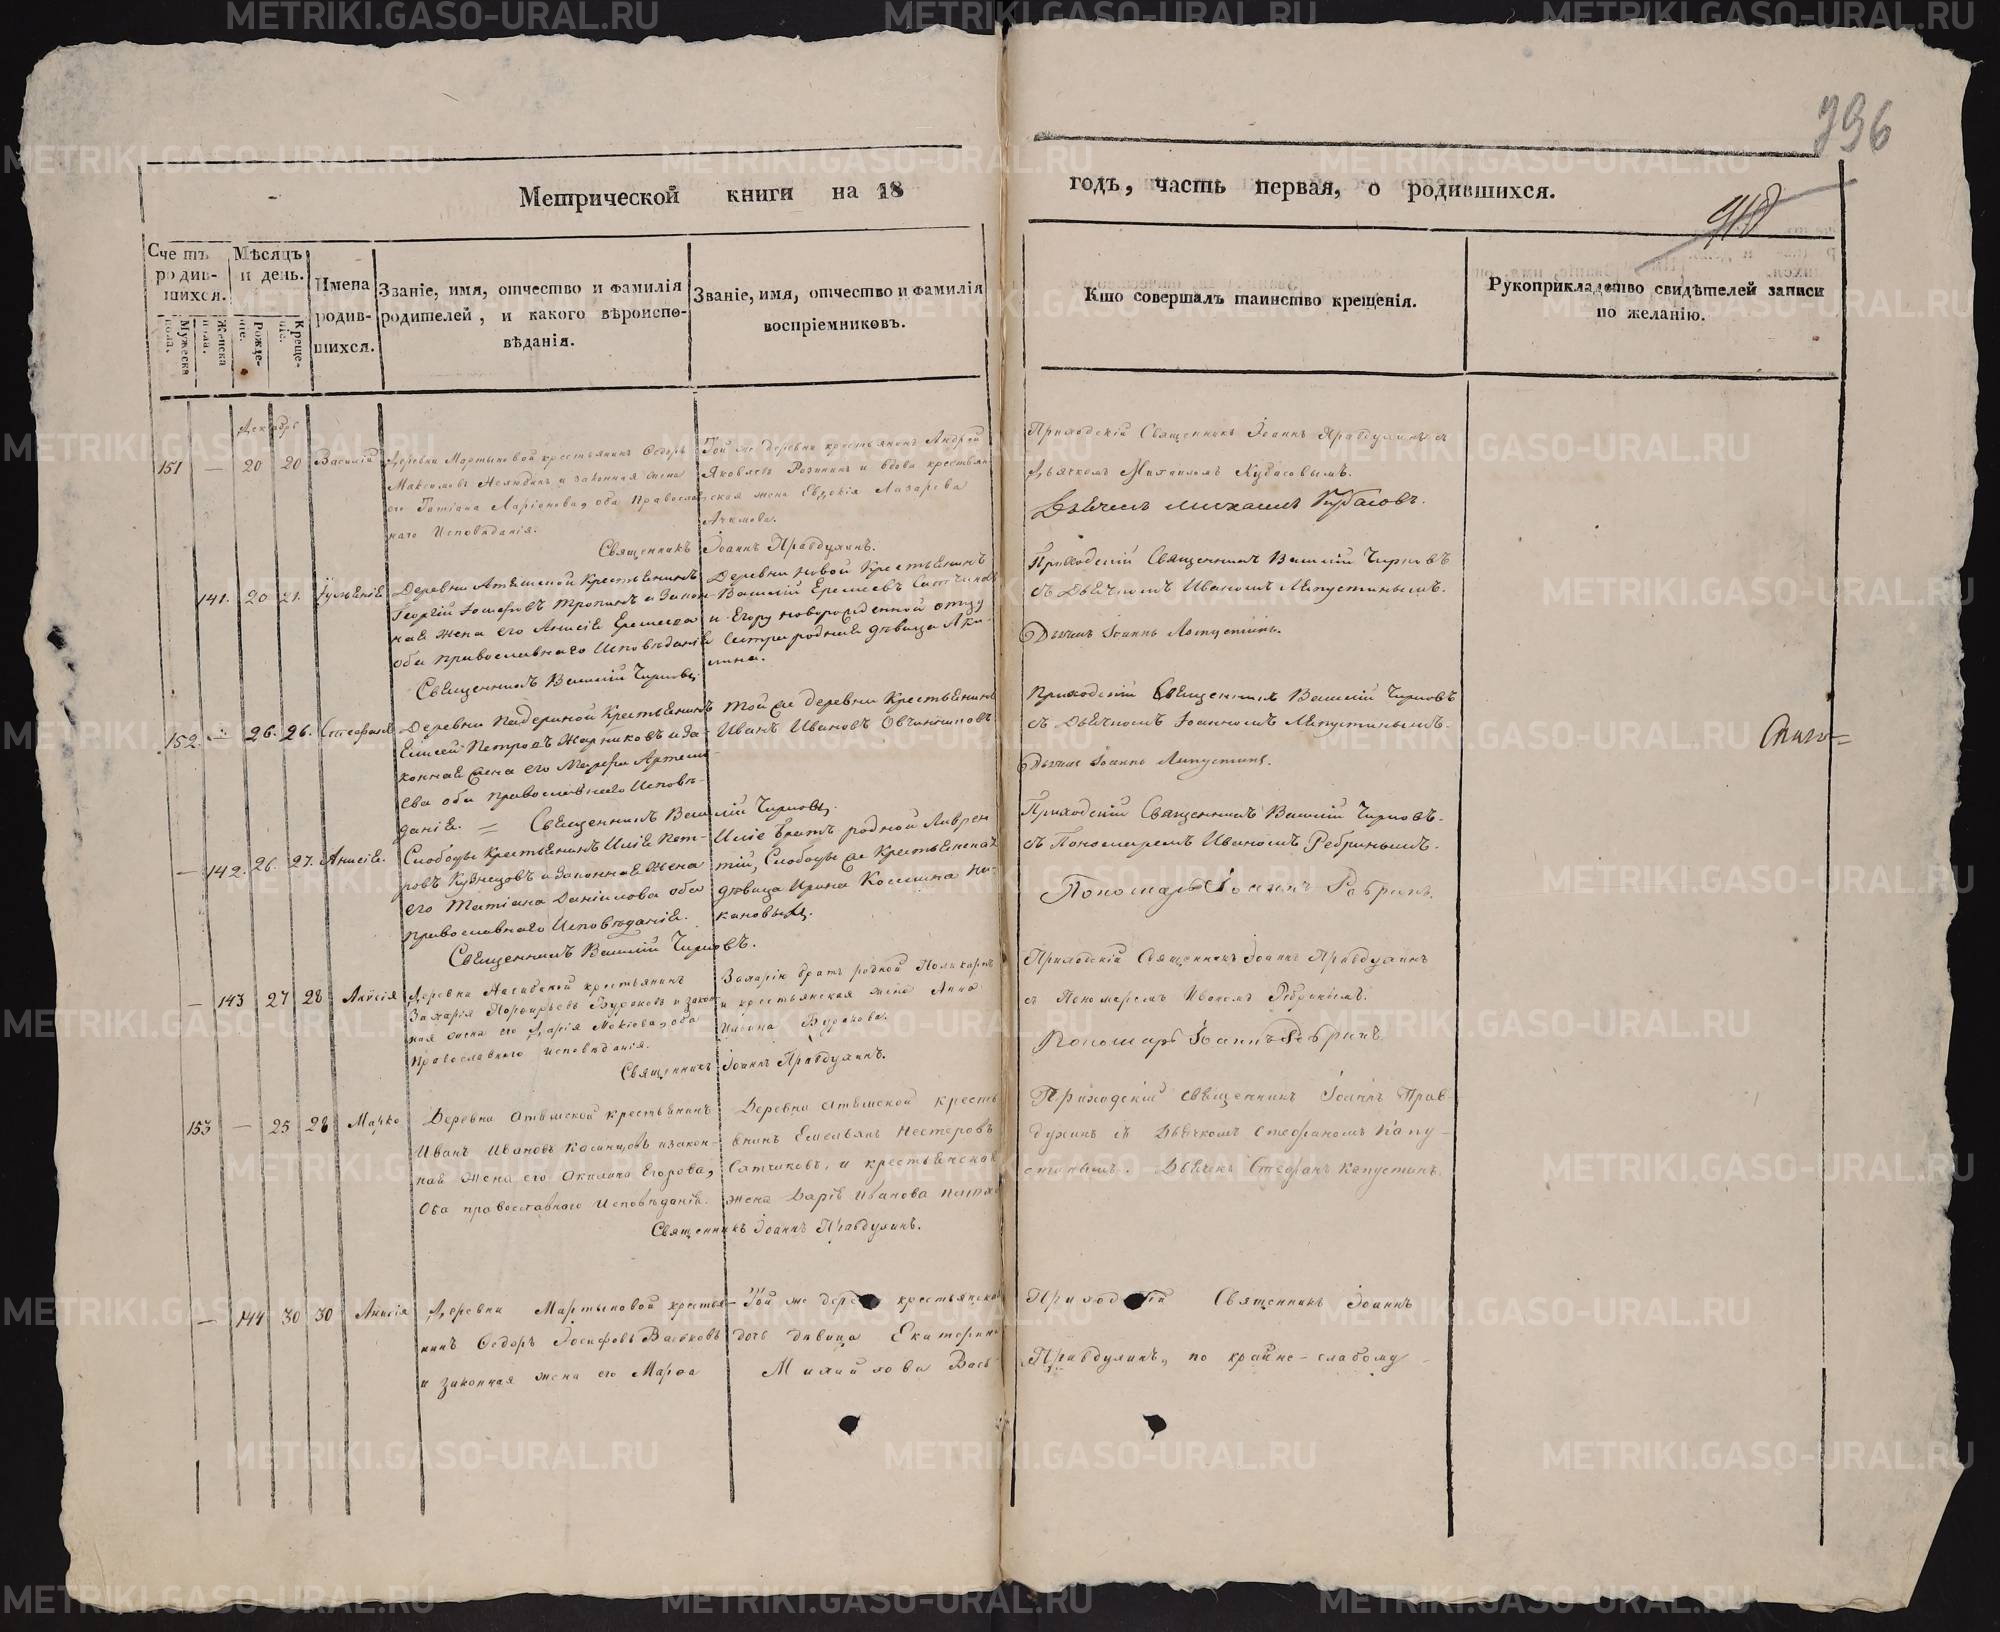 396
918
Метрической книги на 18
годъ, часть первая, о родившихся.
Счетъ родив-шихся.
Мужеска пола.
Женска пола.
Мѣсяцъ и день.
Рожде-ніе.
Креще-ніе.
Имена родив-шихся.
Званіе, имя, отчество и фамилія родителей, и какого вѣроиспо-вѣданія.
Званіе, имя, отчество и фамилія воспріемниковъ.
Кто совершалъ таинство крещенія.
Рукоприкладство свидѣтелей записи по желанію.
Декабрь
151 — 20 20 Василій
Деревни Мартыновой крестьянинъ Ѳедоръ
Максимовъ и законная жена
его Татіана Ларіонова, оба православ-
наго Исповѣданія.
Той же деревни крестьянинъ Андрей
Яковлевъ и вдова крестьян-
ская жена Евдокія Лазарева
Священникъ Іоаннъ Правдухинъ.
Приходскій Священникъ Іоаннъ Правдухинъ съ
Дьячкомъ Михаиломъ Кубасовымъ.
Дьячекъ Михаилъ Кубасовъ.
141. 20 21. Іуліанія
Деревни Атяшской Крестьянинъ
Георгій Тропинъ и Закон-
ная жена его Анисія Еремеева
оба православнаго Исповѣданія
Деревни Новой Крестьянинъ
Василій Еремеевъ
и Егору новорожденной отцу
сестра родная дѣвица Аки-
лина.
Священникъ Василій Чирковъ
Приходскій Священникъ Василій Чирковъ
съ Дьячкомъ Иваномъ Лапустинымъ.
Дьячекъ Іоаннъ Лапустинъ.
152. — 26. 26. Стефанъ
Деревни Падериной Крестьянинъ
Елисей Петровъ Жарниковъ и за-
конная жена его Марѳа Артемь-
ева оба православнаго Исповѣ-
данія. =
Той же деревни Крестьянинъ
Иванъ Ивановъ Овчинниковъ
Священникъ Василій Чирковъ.
Приходскій Священникъ Василій Чирковъ
съ Дьячкомъ Іоанномъ Лапустинымъ.
Дьячекъ Іоаннъ Лапустинъ.
— 142. 26. 27. Анисія.
Слободы Крестьянинъ Илія Пет-
ровъ Кузнецовъ и Законная Жена
его Татіана Даніилова оба
православнаго Исповѣданія.
Иліе братъ родной Лаврен
тій, Слободы же Крестьянская
дѣвица Ирина Козмина
Священникъ Василій Чирковъ.
Приходскій Священникъ Василій Чирковъ.
съ Пономаремъ Иваномъ Ребринымъ.
Пономарь Іоаннъ Ребринъ.
— 143 27 28 Анисія
крестьянинъ
Захарія Порфирьевъ Бураковъ и закон-
ная жена его Дарія Мокіева, оба
православнаго исповѣданія.
Захарію братъ родной Поликарпъ
и крестьянская жена Анна
Буракова.
Священникъ Іоаннъ Правдухинъ.
Приходскій Священникъ Іоаннъ Правдухинъ
съ Пономаремъ Иваномъ Ребринымъ.
Пономарь Іоаннъ Ребринъ
153 — 25 28 Марко
Деревни Атяшской крестьянинъ
Иванъ Ивановъ Казанцовъ и закон-
ная жена его Акилина Егорова,
Оба православнаго Исповѣданія.
Деревни Атяшской кресть
янинъ Емельянъ Нестеровъ
и крестьянская
жена Дарія Иванова
Священникъ Іоаннъ Правдухинъ.
Приходскій священникъ Іоаннъ Прав-
духинъ съ Дьячкомъ Стефаномъ Капу-
стинымъ. Дьячекъ Стефанъ Капустинъ.
— 144 30 30 Анисія
Деревни Мартыновой крестья-
нинъ Ѳедоръ Іосифовъ Васьковъ
и законная жена его Марѳа
Той же деревни крестьянская
дочь дѣвица Екатерина
Михайлова Вась-
Приходскій Священникъ Іоаннъ
Правдухинъ, по крайне-слабому